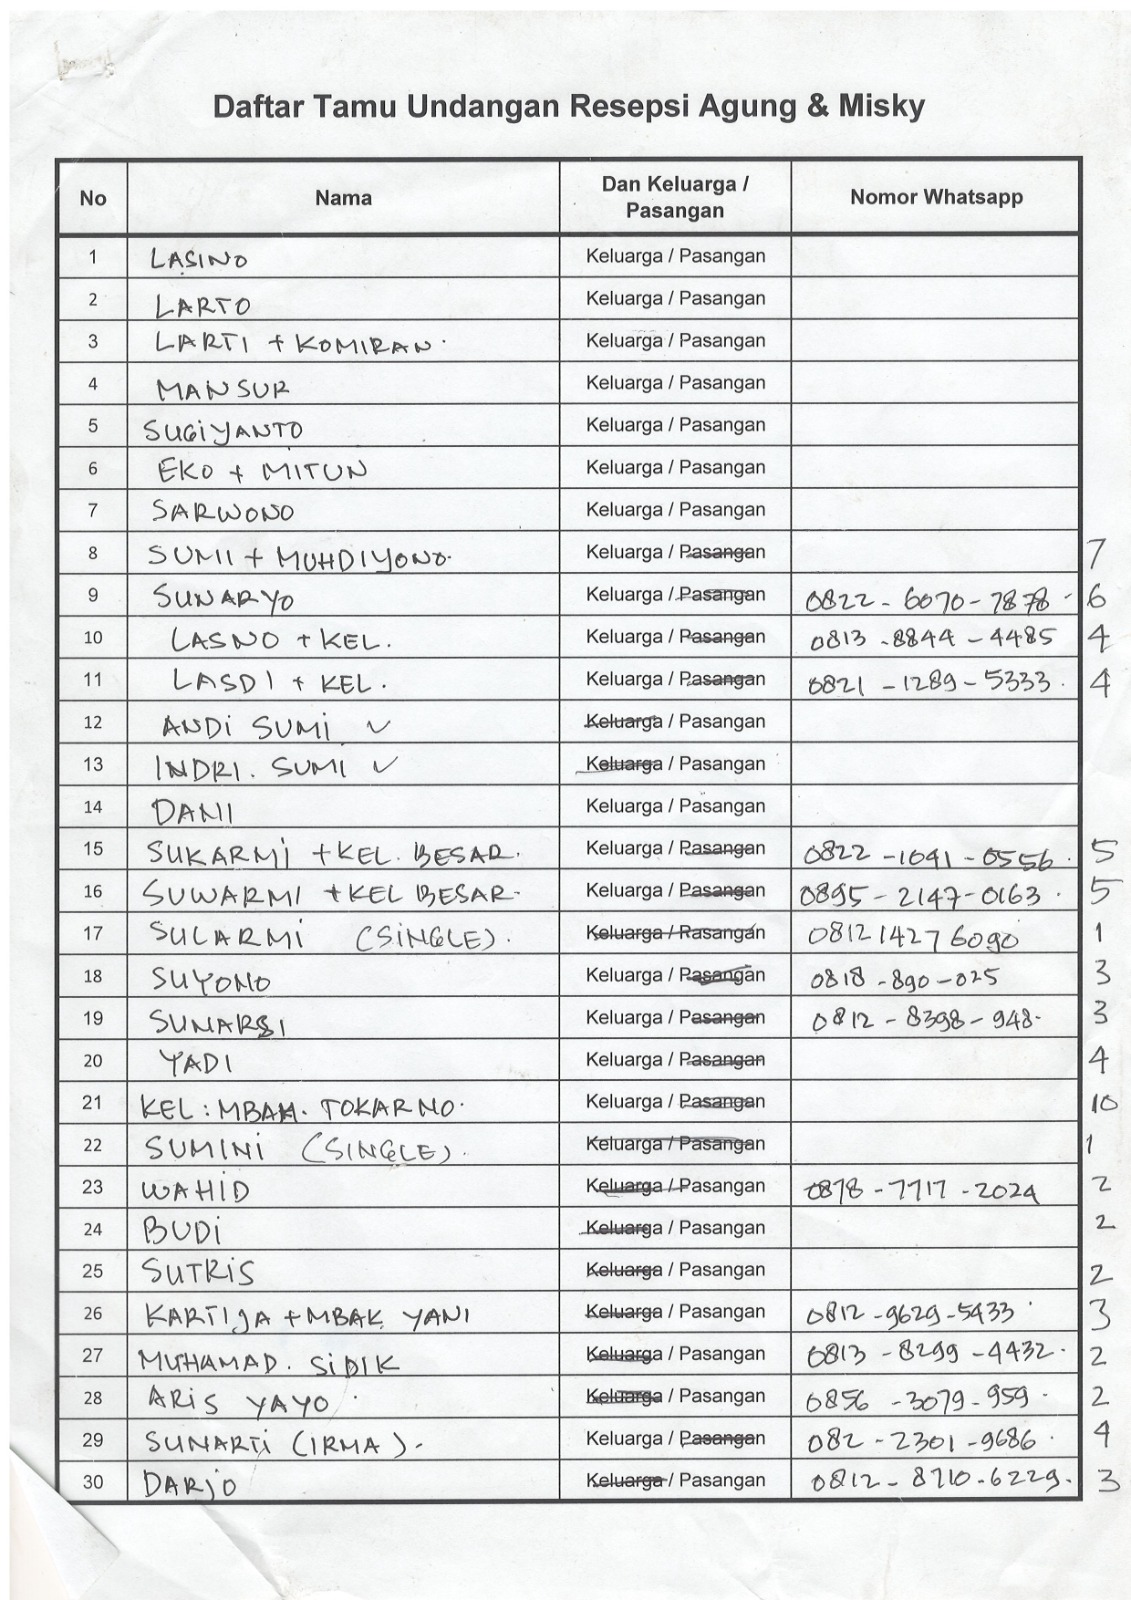 Daftar Tamu Undangan Resepsi Agung & Misky
No Nama Dan Keluarga / Pasangan Nomor Whatsapp
1 LASINO Keluarga / Pasangan
2 LARTO Keluarga / Pasangan
3 LARTI + KOMIRAN. Keluarga / Pasangan
4 MANSUR Keluarga / Pasangan
5 SUGIYANTO Keluarga / Pasangan
6 EKO + MITUN Keluarga / Pasangan
7 SARWONO Keluarga / Pasangan
8 SUMI + MUHDIYONO. Keluarga / Pasangan 7
9 SUNARYO Keluarga / Pasangan 0822 - 6070 - 7878 - 6
10 LASNO + KEL. Keluarga / Pasangan 0813 - 8844 - 4485 4
11 LASDI + KEL. Keluarga / Pasangan 0821 - 1289 - 5333. 4
12 ANDI SUMI ✓ Keluarga / Pasangan
13 INDRI. SUMI ✓ Keluarga / Pasangan
14 DANI Keluarga / Pasangan
15 SUKARMI + KEL. BESAR. Keluarga / Pasangan 0822 - 1041 - 0556. 5
16 SUWARMI + KEL BESAR. Keluarga / Pasangan 0895 - 2147 - 0163. 5
17 SULARMI (SINGLE). Keluarga / Pasangan 081214276090 1
18 SUYONO Keluarga / Pasangan 0818 - 890 - 025 3
19 SUNARSI Keluarga / Pasangan 0812 - 8398 - 948. 3
20 YADI Keluarga / Pasangan 4
21 KEL : MBAH. TOKARNO. Keluarga / Pasangan 10
22 SUMINI (SINGLE). Keluarga / Pasangan 1
23 WAHID Keluarga / Pasangan 0878 - 7717 - 2024 2
24 BUDI Keluarga / Pasangan 2
25 SUTRIS Keluarga / Pasangan 2
26 KARTIJA + MBAK YANI Keluarga / Pasangan 0812 - 9629 - 5433. 3
27 MUHAMAD. SIDIK Keluarga / Pasangan 0813 - 8299 - 4432. 2
28 ARIS YAYO. Keluarga / Pasangan 0856 - 3079 - 959. 2
29 SUNARTI (IRMA). Keluarga / Pasangan 082 - 2301 - 9686. 4
30 DARJO Keluarga / Pasangan 0812 - 8710 - 6229. 3